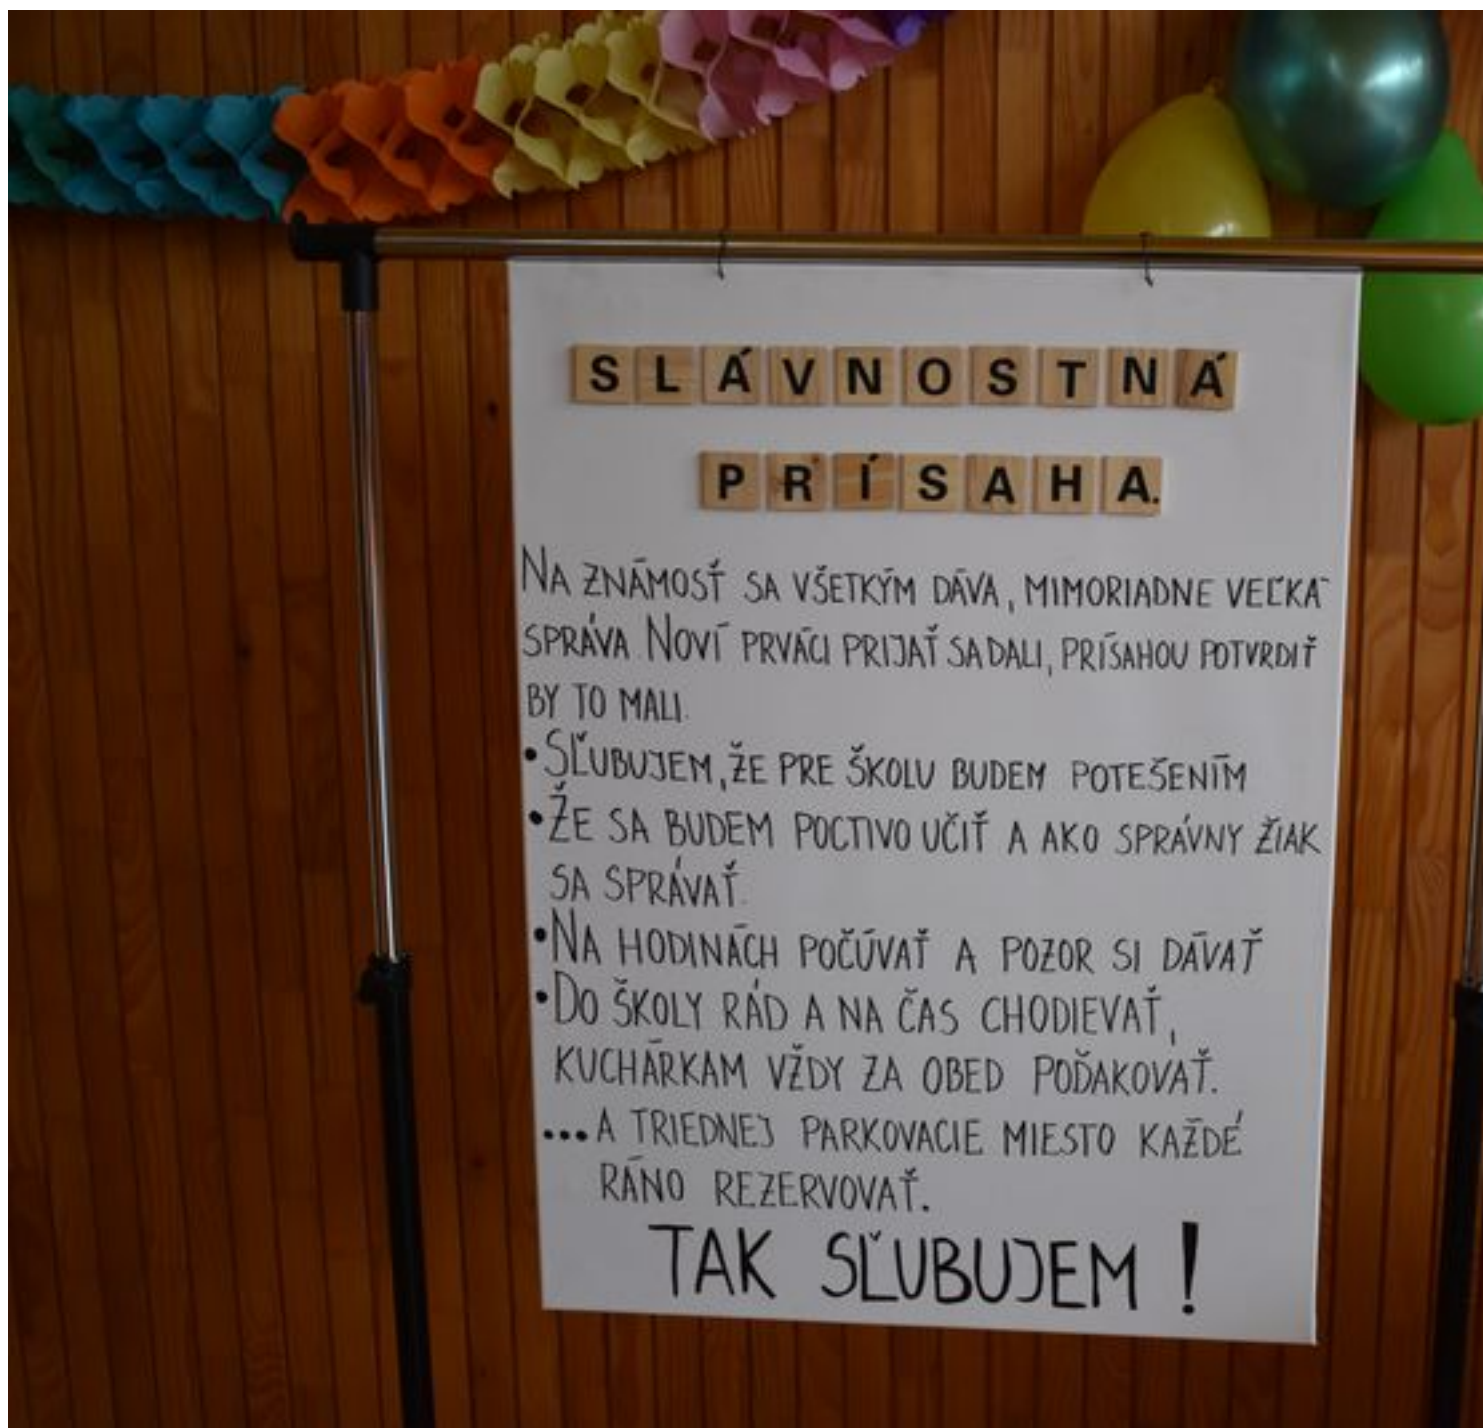 SLÁVNOSTNÁ
PRÍSAHA.
NA ZNÁMOSŤ SA VŠETKÝM DÁVA, MIMORIADNE VEĽKÁ
SPRÁVA. NOVÍ PRVÁCI PRIJAŤ SA DALI, PRÍSAHOU POTVRDIŤ
BY TO MALI.
•SĽUBUJEM, ŽE PRE ŠKOLU BUDEM POTEŠENÍM
•ŽE SA BUDEM POCTIVO UČIŤ A AKO SPRÁVNY ŽIAK
SA SPRÁVAŤ.
•NA HODINÁCH POČÚVAŤ A POZOR SI DÁVAŤ
•DO ŠKOLY RÁD A NA ČAS CHODIEVAŤ,
KUCHÁRKAM VŽDY ZA OBED POĎAKOVAŤ.
...A TRIEDNEJ PARKOVACIE MIESTO KAŽDÉ
RÁNO REZERVOVAŤ.
TAK SĽUBUJEM!